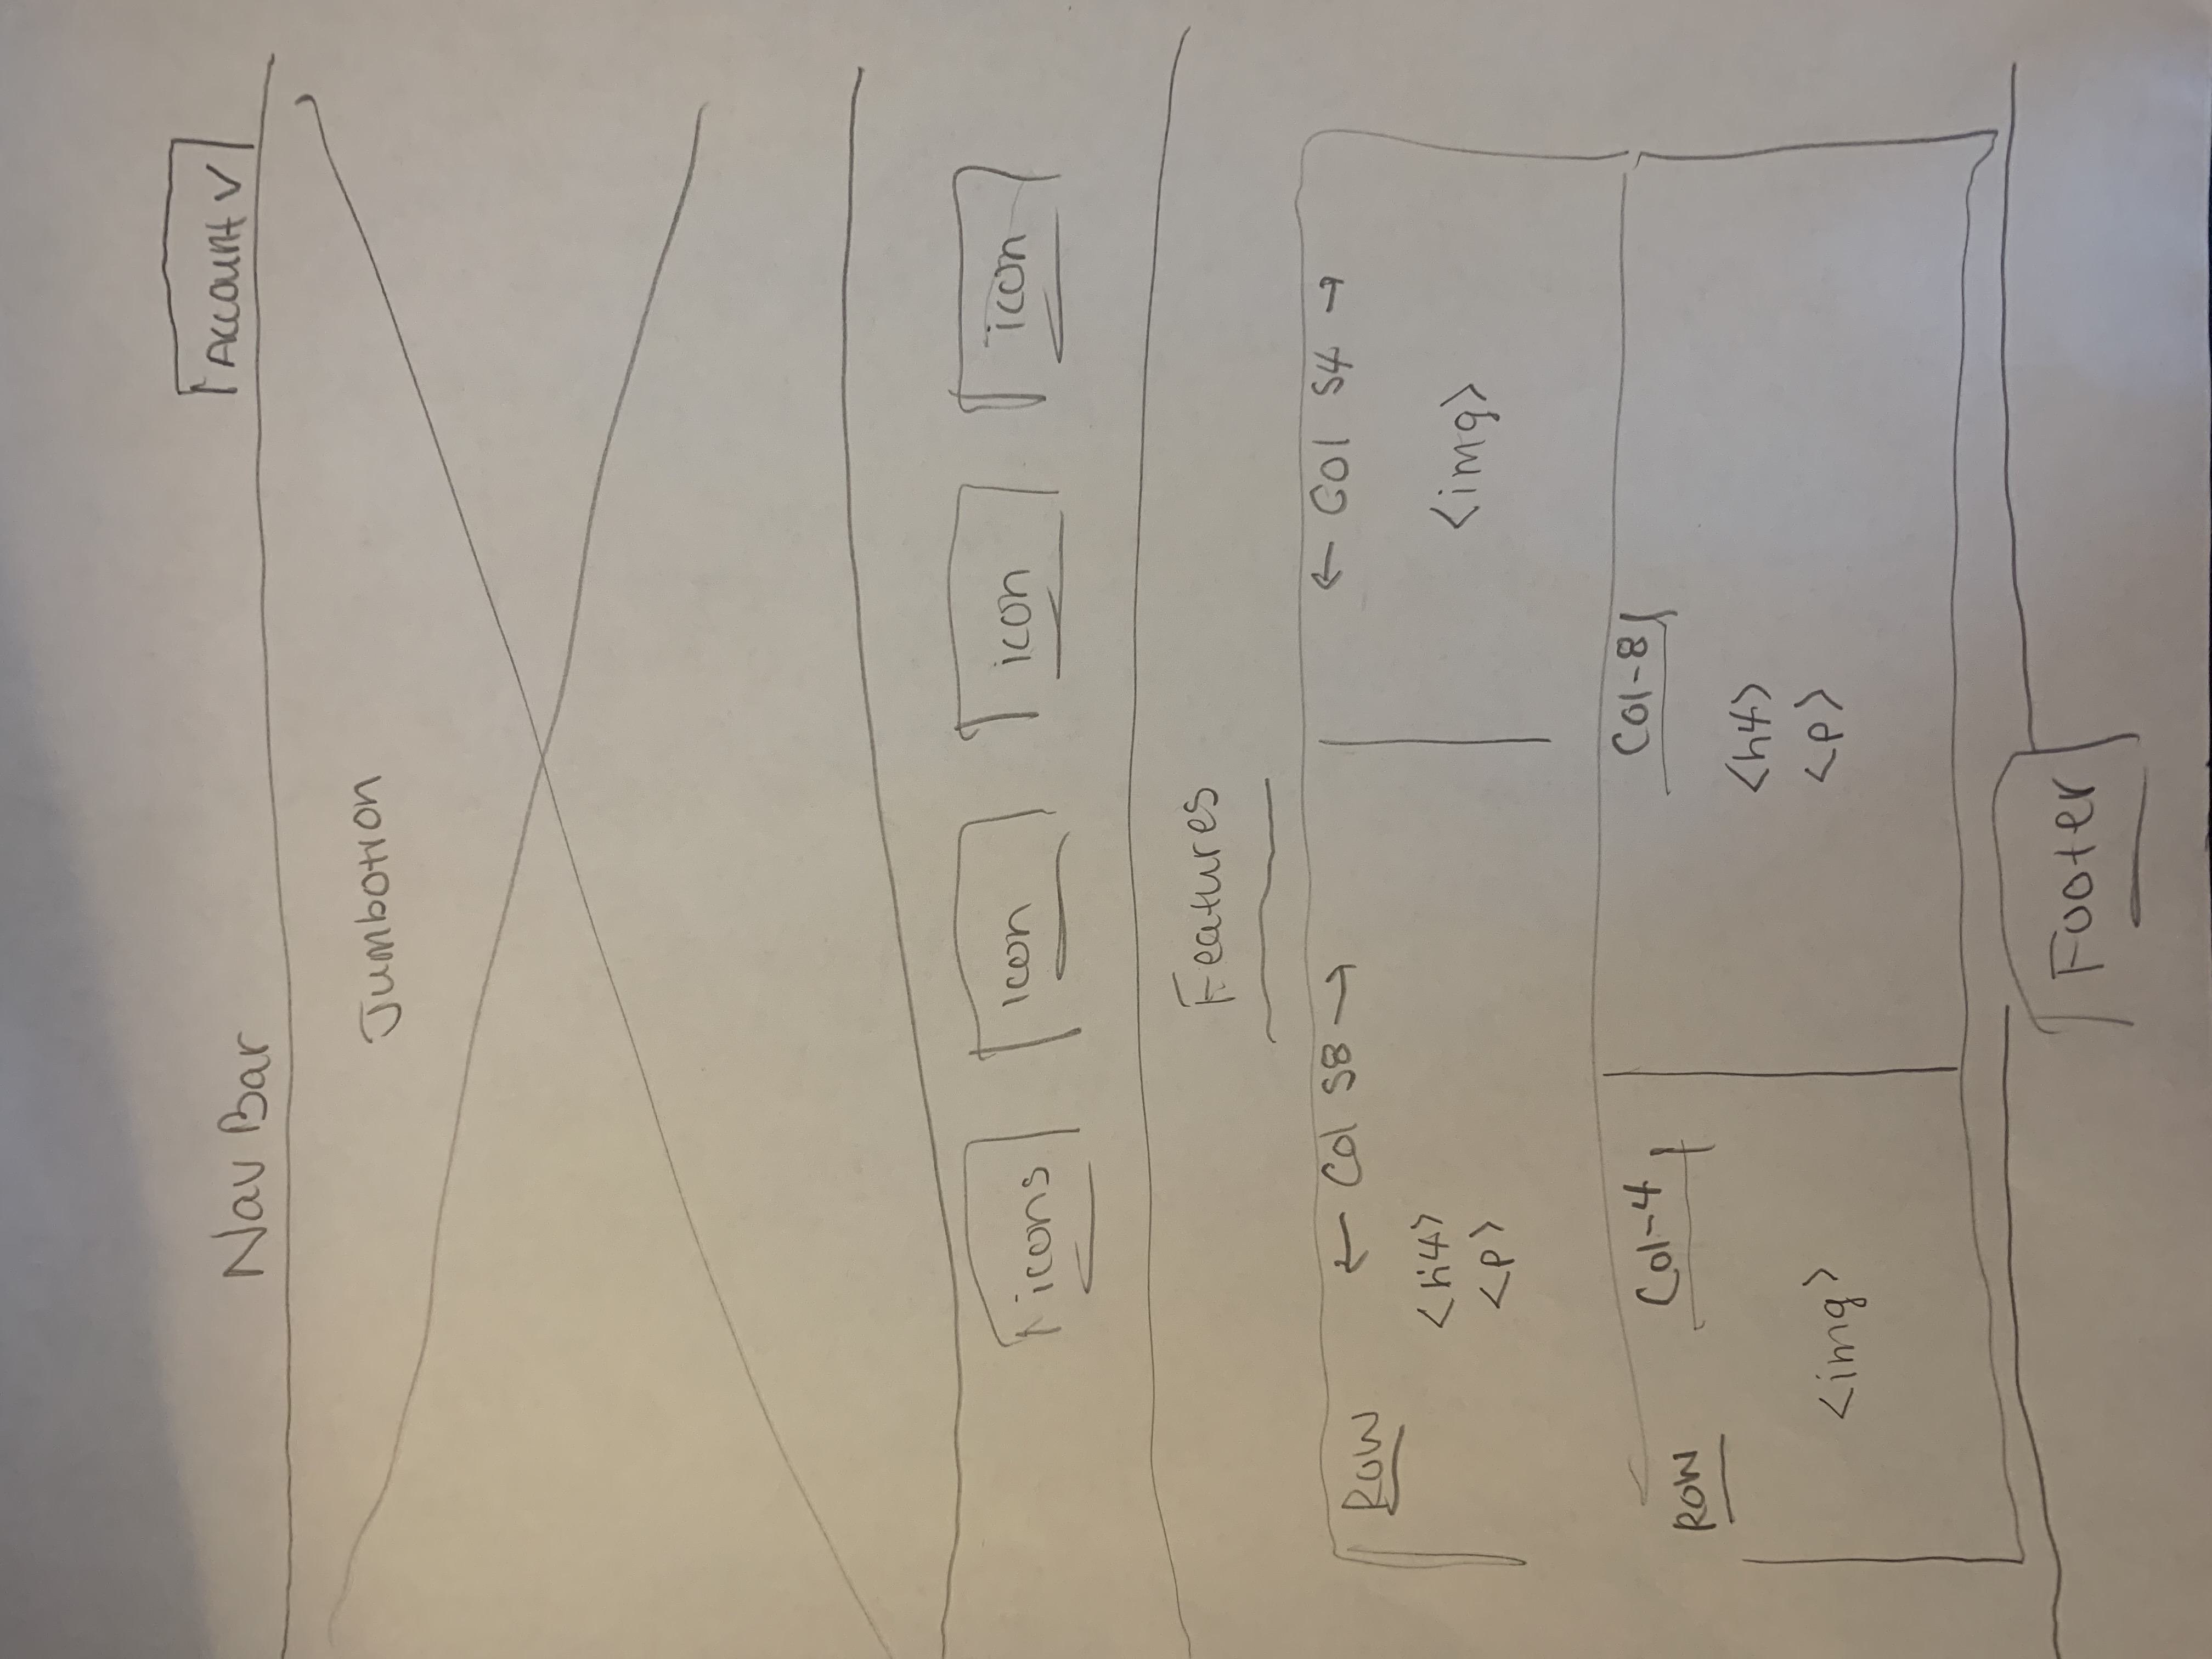 Nav Bar
Account V
Jumbotron
icons icon icon icon
Features
ROW ← Col S8 → ← Col S4 →
<h4>
<p>
<img>
ROW Col-4 Col-8
<img>
<h4>
<p>
Footer